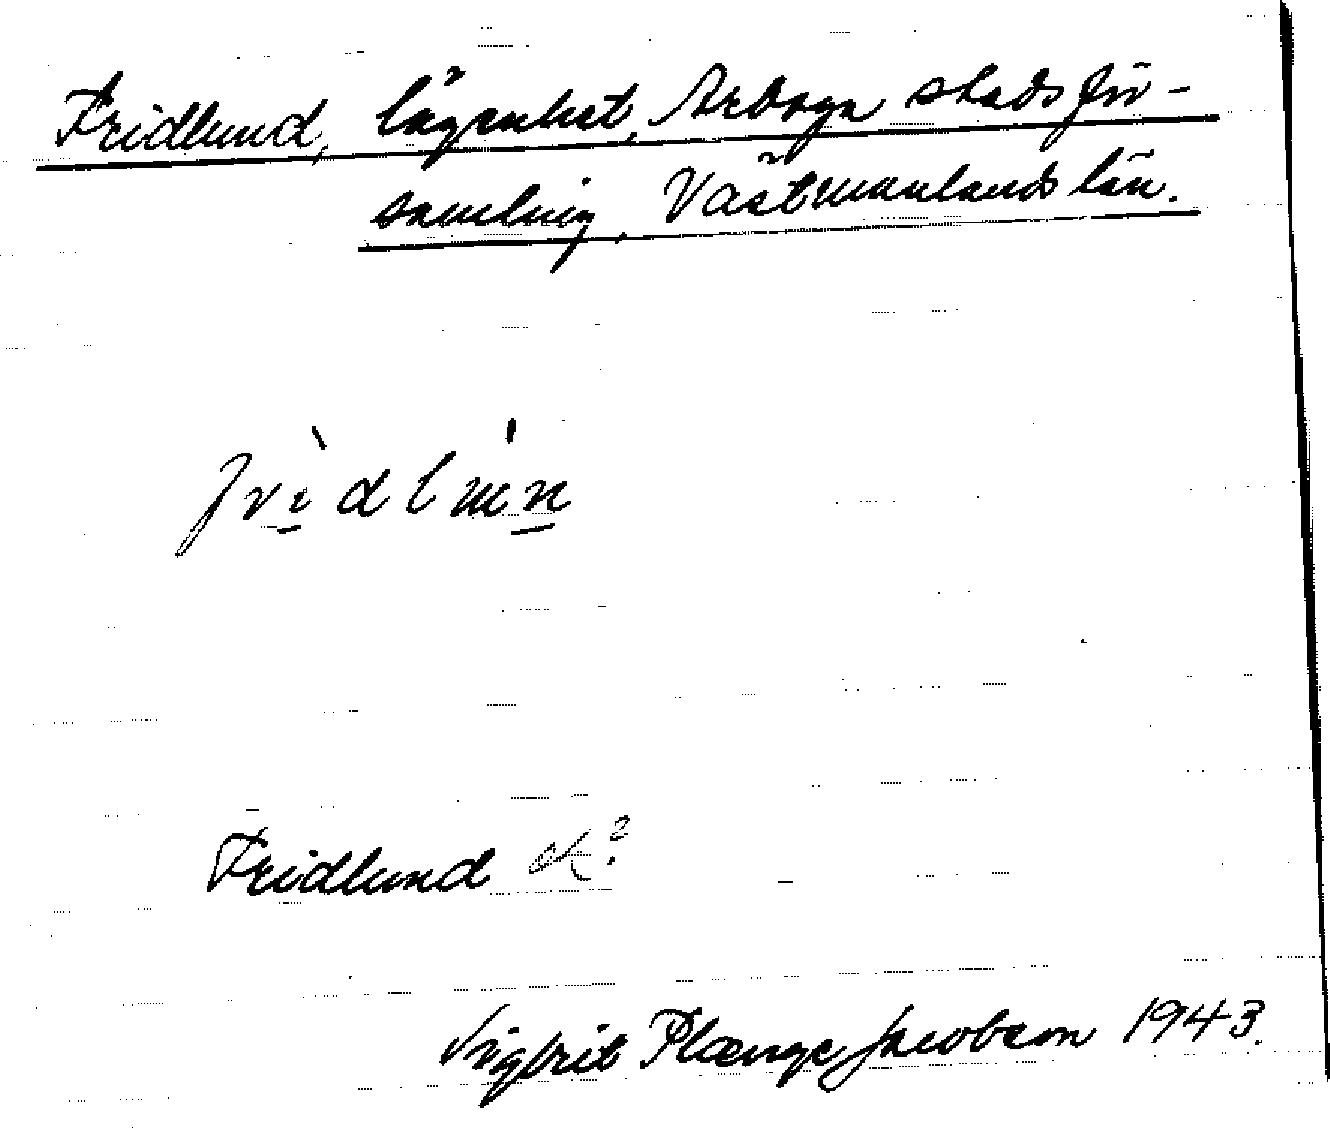 Fridlund, lägenhet, Arboga stadsför-
samling, Västmanlands län.
frìdlún
Fridlund ok?
Sigfrid Plænge Jacobson 1943.